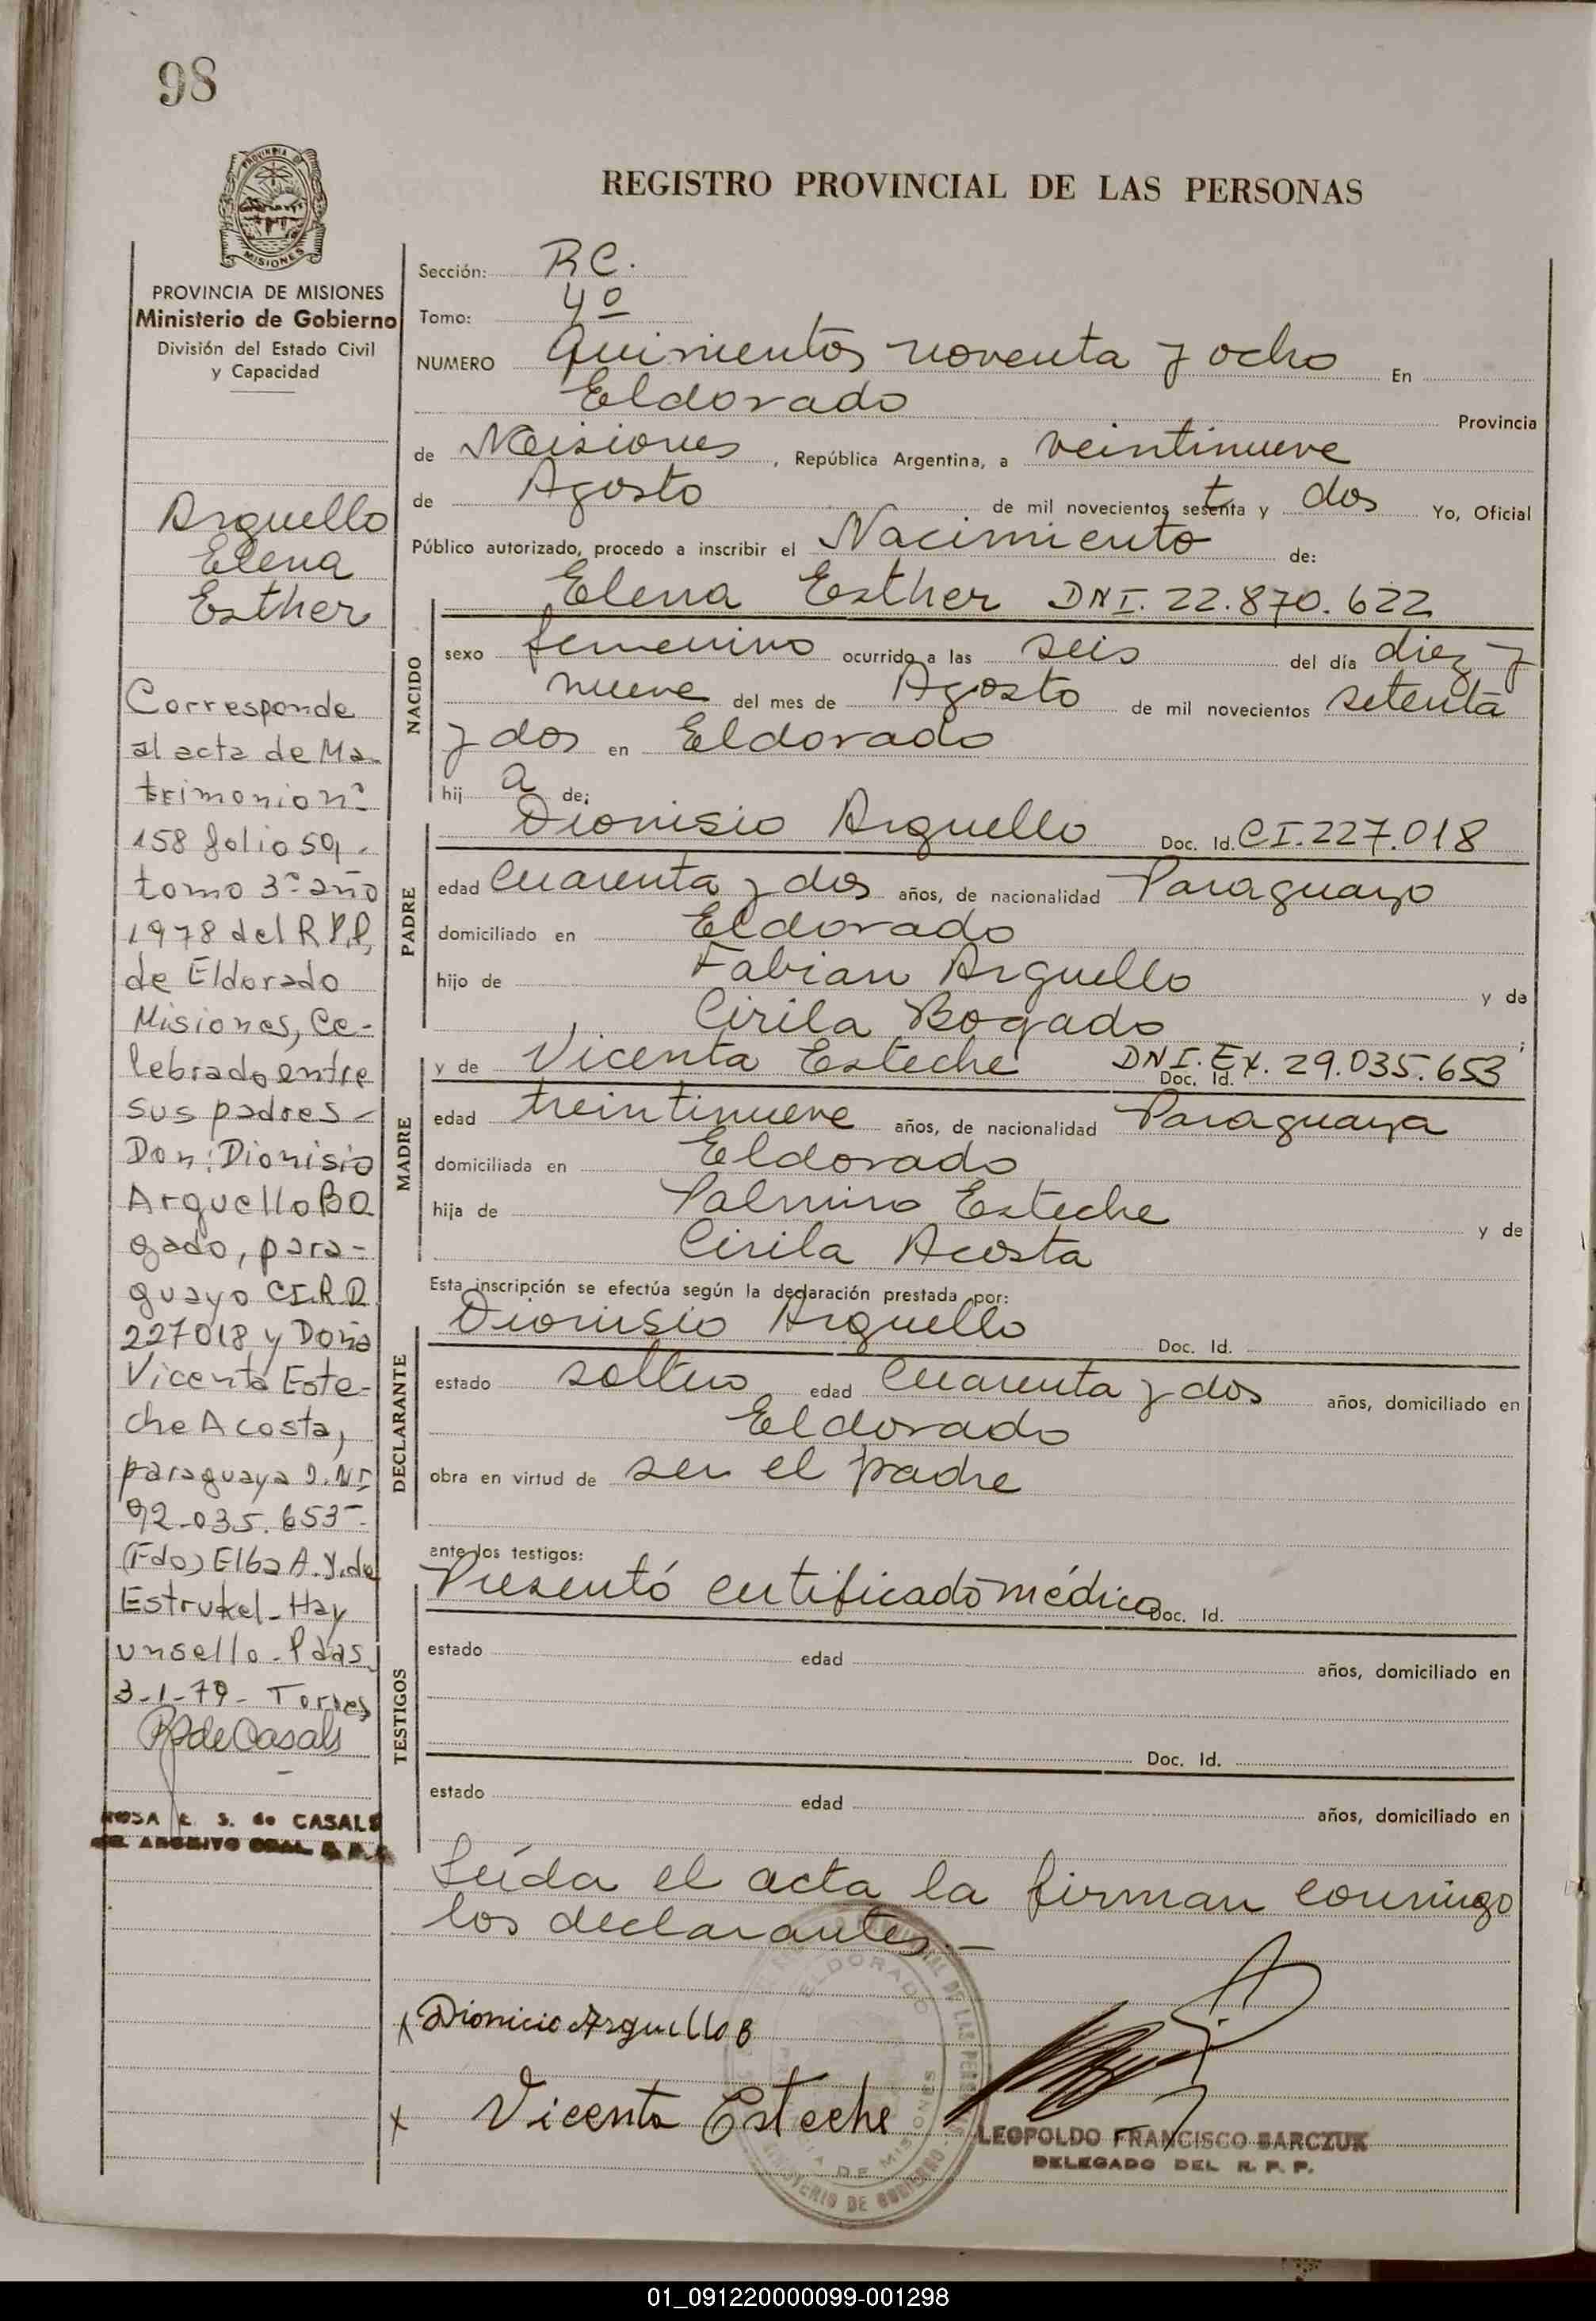 98
PROVINCIA DE
MISIONES
PROVINCIA DE MISIONES
Ministerio de Gobierno
División del Estado Civil
y Capacidad
Arguello
Elena
Esther
Corresponde
al acta de Ma-
trimonio nº
158 folio 59.
tomo 3º año
1978 del R.P.P,
de Eldorado
Misiones, Ce-
lebrado entre
sus padres -
Don: Dionisio
Arguello Bo
gado, para-
guayo C.I.R.P.
227018 y Doña
Vicenta Este-
che Acosta,
paraguaya D.NI
92.035.653-
(Fdo) Elba A.Y.de
Estrukel - Hay
un sello - Pdas.
3-1-79 - Torres
R de Casals
ROSA E. S. de CASALS
ARCHIVO GRAL. R. P. P.
REGISTRO PROVINCIAL DE LAS PERSONAS
Sección: R C.
Tomo: 4º
NUMERO Quinientos noventa y ocho En
Eldorado Provincia
de Misiones, República Argentina, a veintinueve
de Agosto de mil novecientos setenta y dos Yo, Oficial
Público autorizado, procedo a inscribir el Nacimiento de:
Elena Esther DNI. 22.870.622
NACIDO
sexo femenino ocurrido a las seis del día diez y
nueve del mes de Agosto de mil novecientos setenta
y dos en Eldorado
hij a de:
Dionisio Arguello Doc. Id. CI.227.018
PADRE
edad Cuarenta y dos años, de nacionalidad Paraguayo
domiciliado en Eldorado
hijo de Fabian Arguello y de
Cirila Bogado
y de Vicenta Esteche Doc. Id. DNI.Ex. 29.035.653
MADRE
edad treintinueve años, de nacionalidad Paraguaya
domiciliada en Eldorado
hija de Palmiro Esteche y de
Cirila Acosta
Esta inscripción se efectúa según la declaración prestada por:
Dionisio Arguello Doc. Id.
DECLARANTE
estado soltero edad Cuarenta y dos años, domiciliado en
Eldorado
obra en virtud de ser el padre
ante los testigos:
Presentó certificado médico Doc. Id.
TESTIGOS
estado edad años, domiciliado en
Doc. Id.
estado edad años, domiciliado en
Leída el acta la firman conmigo
los declarantes.-
x Dionicio Arguello B
x Vicenta Esteche
ELDORADO
LEOPOLDO FRANCISCO BARCZUK
DELEGADO DEL R. P. P.
01_091220000099-001298